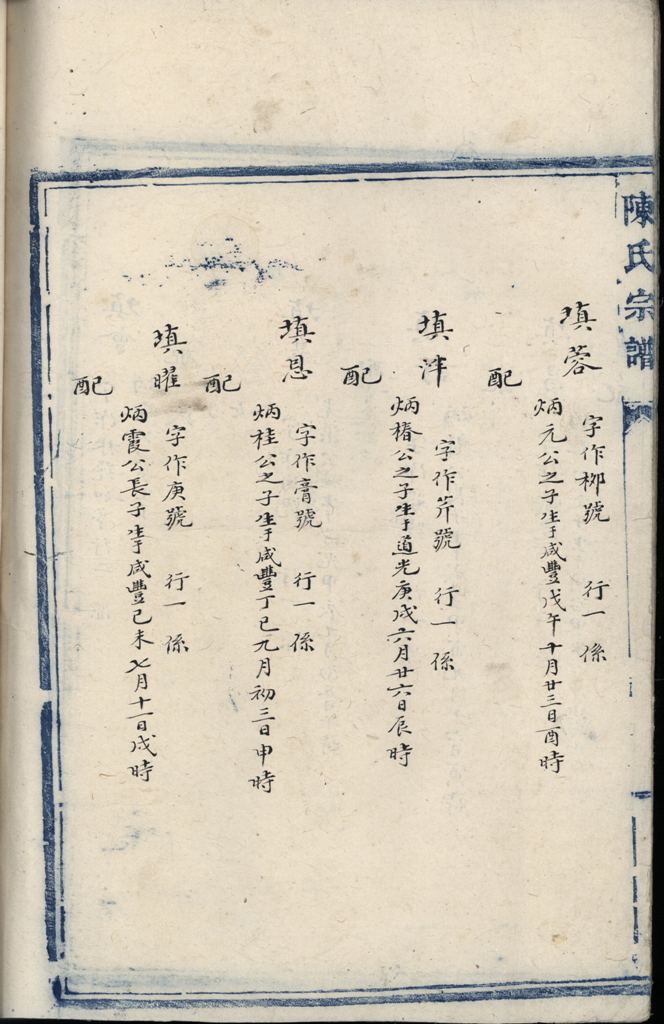 陳氏宗譜
填蓉
字作栁號 行一 係
炳元公之子生于咸豐戊午十月廿三日酉時
配
填泮
字作芹號 行一 係
炳椿公之子生于道光庚戌六月廿六日辰時
配
填恩
字作膏號 行一 係
炳桂公之子生于咸豐丁巳九月初三日申時
配
填曜
字作庚號 行一 係
炳霞公長子生于咸豐己未七月十一日戌時
配